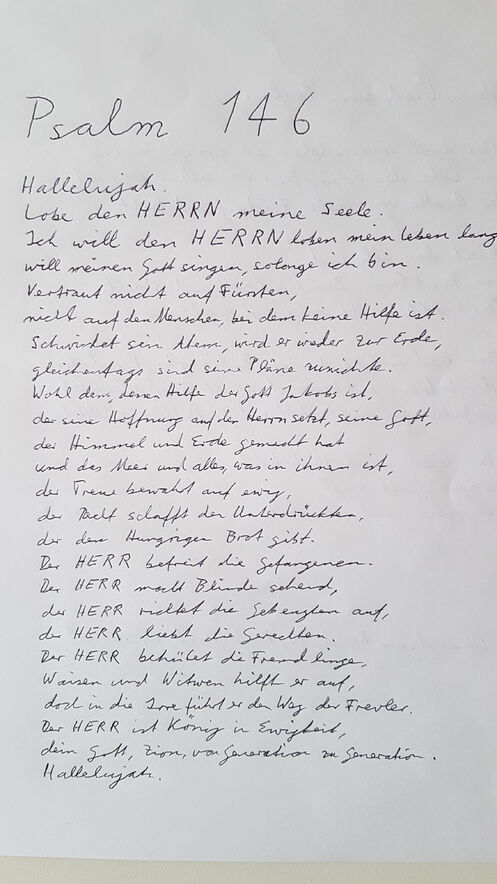 Psalm 146
Hallelujah.
Lobe den HERRN meine Seele.
Ich will den HERRN loben mein Leben lang
will meinen Gott singen, solange ich bin.
Vertraut nicht auf Fürsten,
nicht auf den Menschen, bei dem keine Hilfe ist.
Schwindet sein Atem, wird er wieder zur Erde,
gleichentags sind seine Pläne zunichte.
Wohl dem, dessen Hilfe der Gott Jakobs ist,
der seine Hoffnung auf den Herrn setzt, seine Gott,
der Himmel und Erde gemacht hat
und das Meer und alles, was in ihnen ist,
der Treue bewahrt auf ewig,
der Recht schafft den Unterdrückten,
der den Hungrigen Brot gibt.
Der HERR befreit die Gefangenen.
Der HERR macht Blinde sehend,
der HERR richtet die Gebeugten auf,
der HERR liebt die Gerechten.
Der HERR behütet die Fremdlinge,
Waisen und Witwen hilft er auf,
doch in die Irre führt er den Weg der Frevler.
Der HERR ist König in Ewigkeit,
dein Gott, Zion, von Generation zu Generation.
Hallelujah.